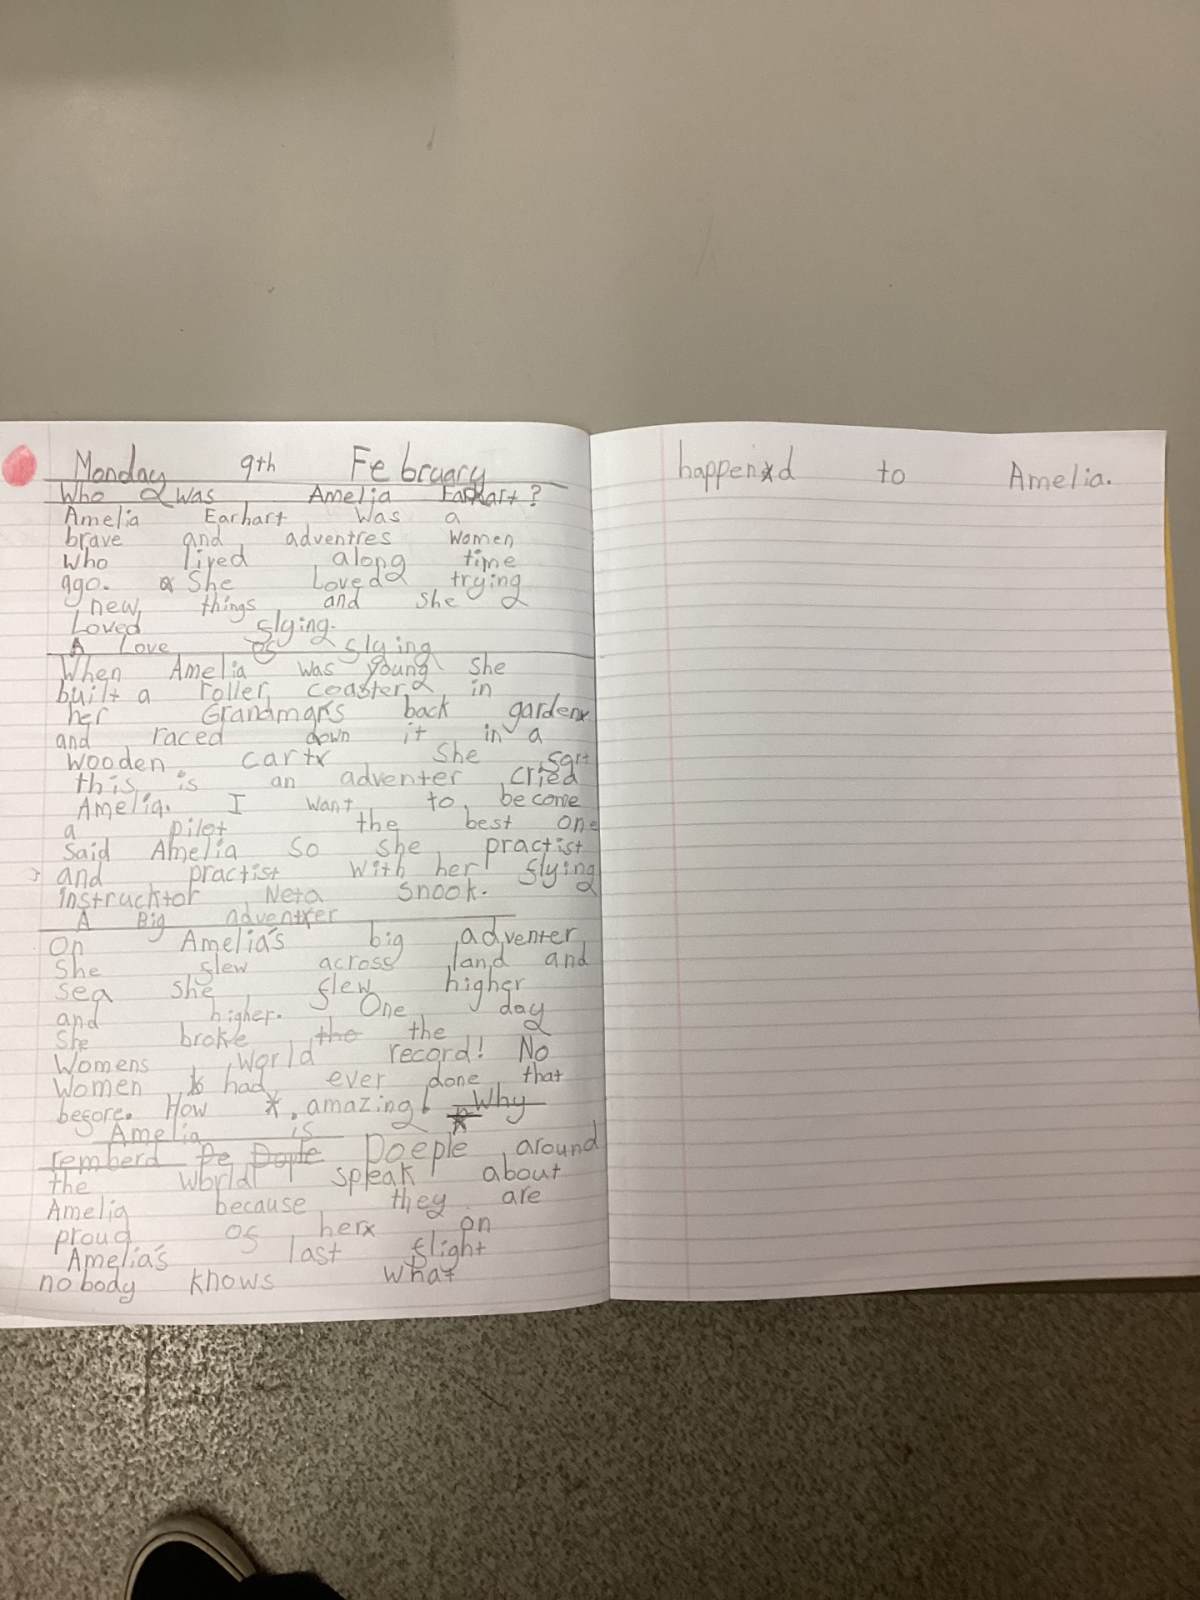 Monday 9th February
Who was Amelia Earhart?
Amelia Earhart was a
brave and adventres women
who lived along time
ago. She Loved trying
new things and she
Loved flying.
A Love of flying
When Amelia was young she
built a roller coaster in
her Grandmars back garden
and raced down it in a
wooden cart She sart
this is an adventer cried
Amelia. I want to become
a pilot the best one
said Amelia so she practist
and practist with her flying
instrucktor Neta Snook.
A Big adventrer
On Amelia's big adventer
She flew across land and
sea she flew higher
and higher. One day
she broke the the
Womens world record! No
Women had ever done that
before. How amazing! Why
Amelia is
remberd Pe Dople Poeple around
the world speak about
Amelia because they are
proud of her on
Amelia's last flight
nobody knows what
happend to Amelia.